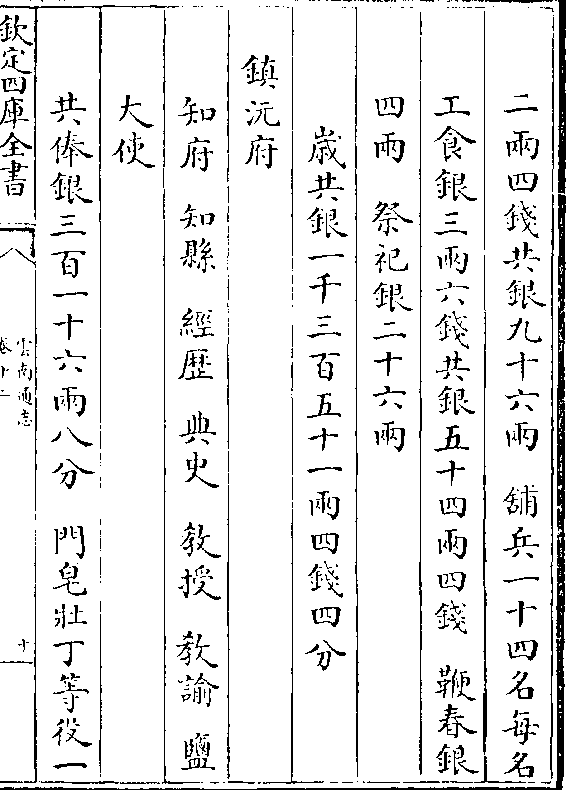 二兩四錢共銀九十六兩　舖兵一十四名每名
工食銀三兩六錢共銀五十四兩四錢　鞭春銀
四兩　祭祀銀二十六兩
歲共銀一千三百五十一兩四錢四分
鎮沅府
知府　知縣　經歷　典史　教授　教諭　鹽
大使
共俸銀三百一十六兩八分　門皂壯丁等役一
欽定四庫全書
雲南通志
十